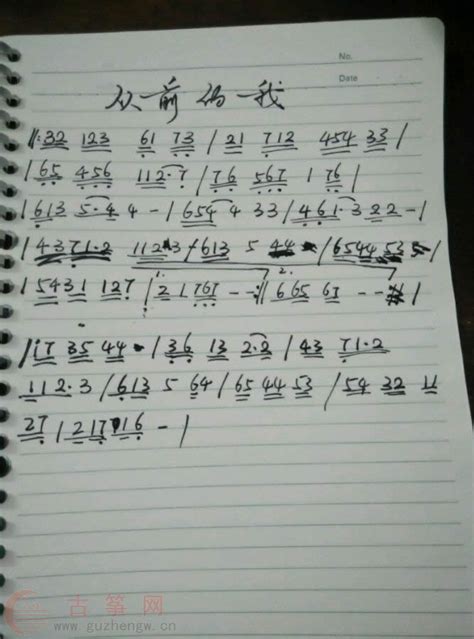 No.
Date
从前的我
‖:32 123 61 73 / 21 712 454 33 /
| 65 456 112·7 / 76 567 1 76 /
| 613 5·4 4 - | 654 4 33 / 461·3 22 - |
| 4371·2 112·3 / 613 5 44 / 6544 53
| 5431 127 | 21 767 - - :‖ 665 67 - - |
| 17 35 44 - | 36 13 2·2 / 43 71·2
112·3 / 613 5 64 / 65 44 53 / 54 32 11
27 / 217 16 - |
古筝网
www.guzhengw.cn